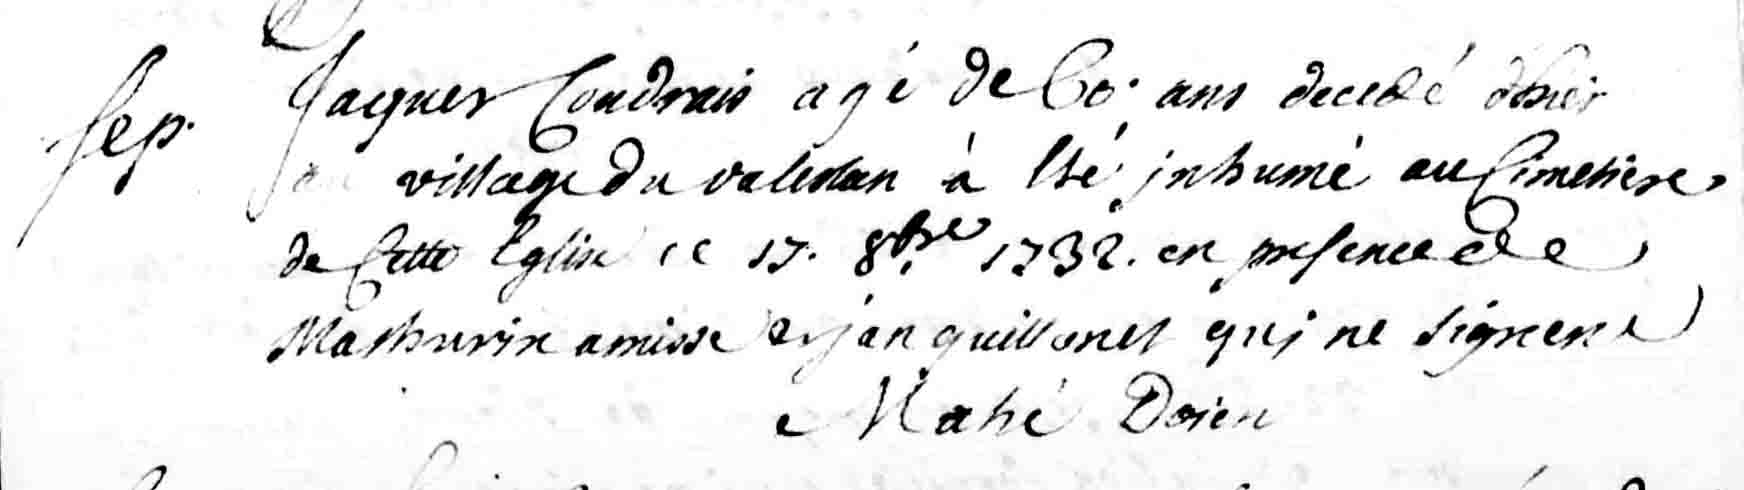 sep. Jacques Coudrais agé de 60. ans decedé d'hier
au village du valestan à été inhumé au Cimetiere
de Cette Eglise ce 17. 8bre 1732. en presence de
Mathurin amisse et jan guillonet qui ne signent
Mahé Doien